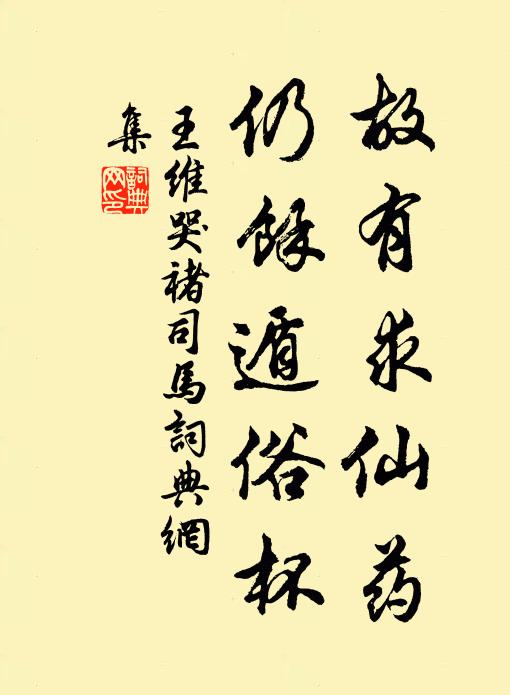 故有求仙药
仍餘遁俗杯
王維哭褚司馬詞典網
集
詞典网印